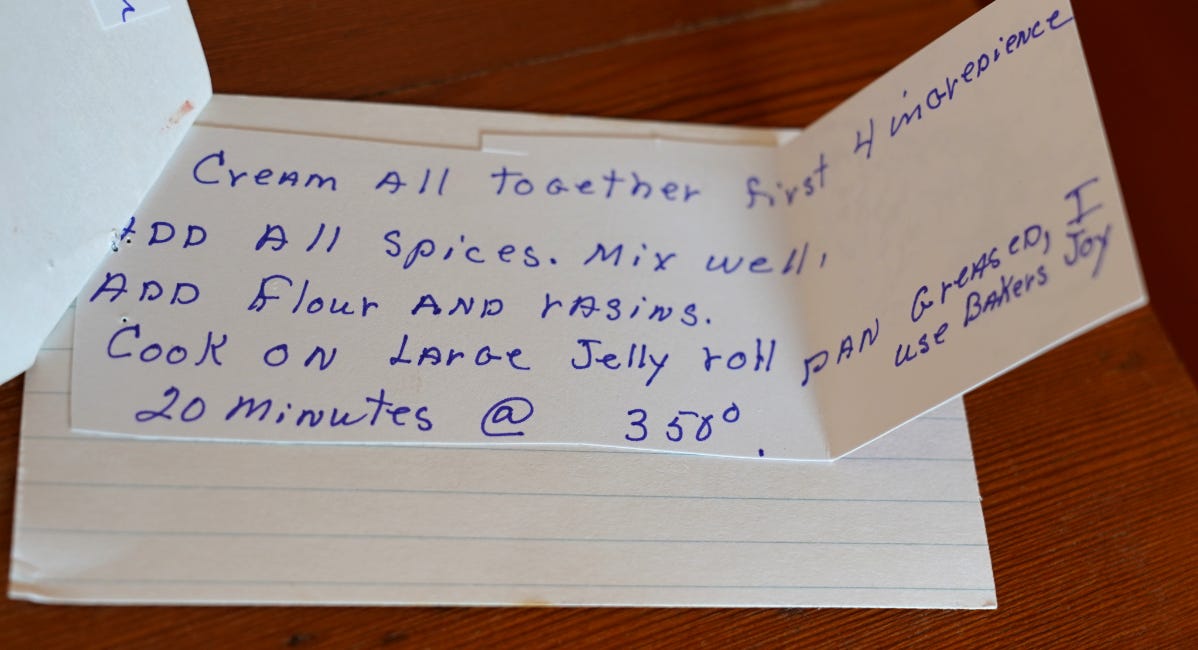 Cream All Together first 4 ingredience
ADD All spices. Mix well,
ADD Flour AND rasins.
Cook on Large Jelly roll pan Greased, I
use Bakers Joy
20 minutes @ 350°.